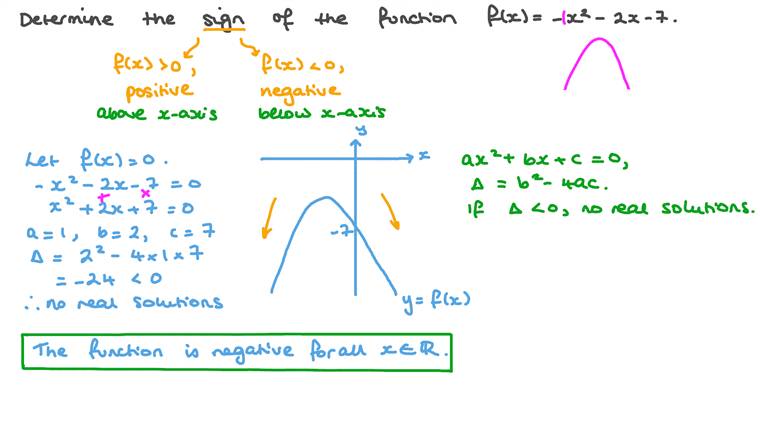 Determine the sign of the function f(x) = -1x² - 2x - 7.
f(x) > 0, f(x) < 0,
positive negative
above x-axis below x-axis
Let f(x) = 0.
-x² - 2x - 7 = 0
+ ×
x² + 2x + 7 = 0
a = 1, b = 2, c = 7
Δ = 2² - 4 × 1 × 7
= -24 < 0
∴ no real solutions
y
x
-7
y = f(x)
ax² + bx + c = 0,
Δ = b² - 4ac.
If Δ < 0, no real solutions.
The function is negative for all x ∈ ℝ.